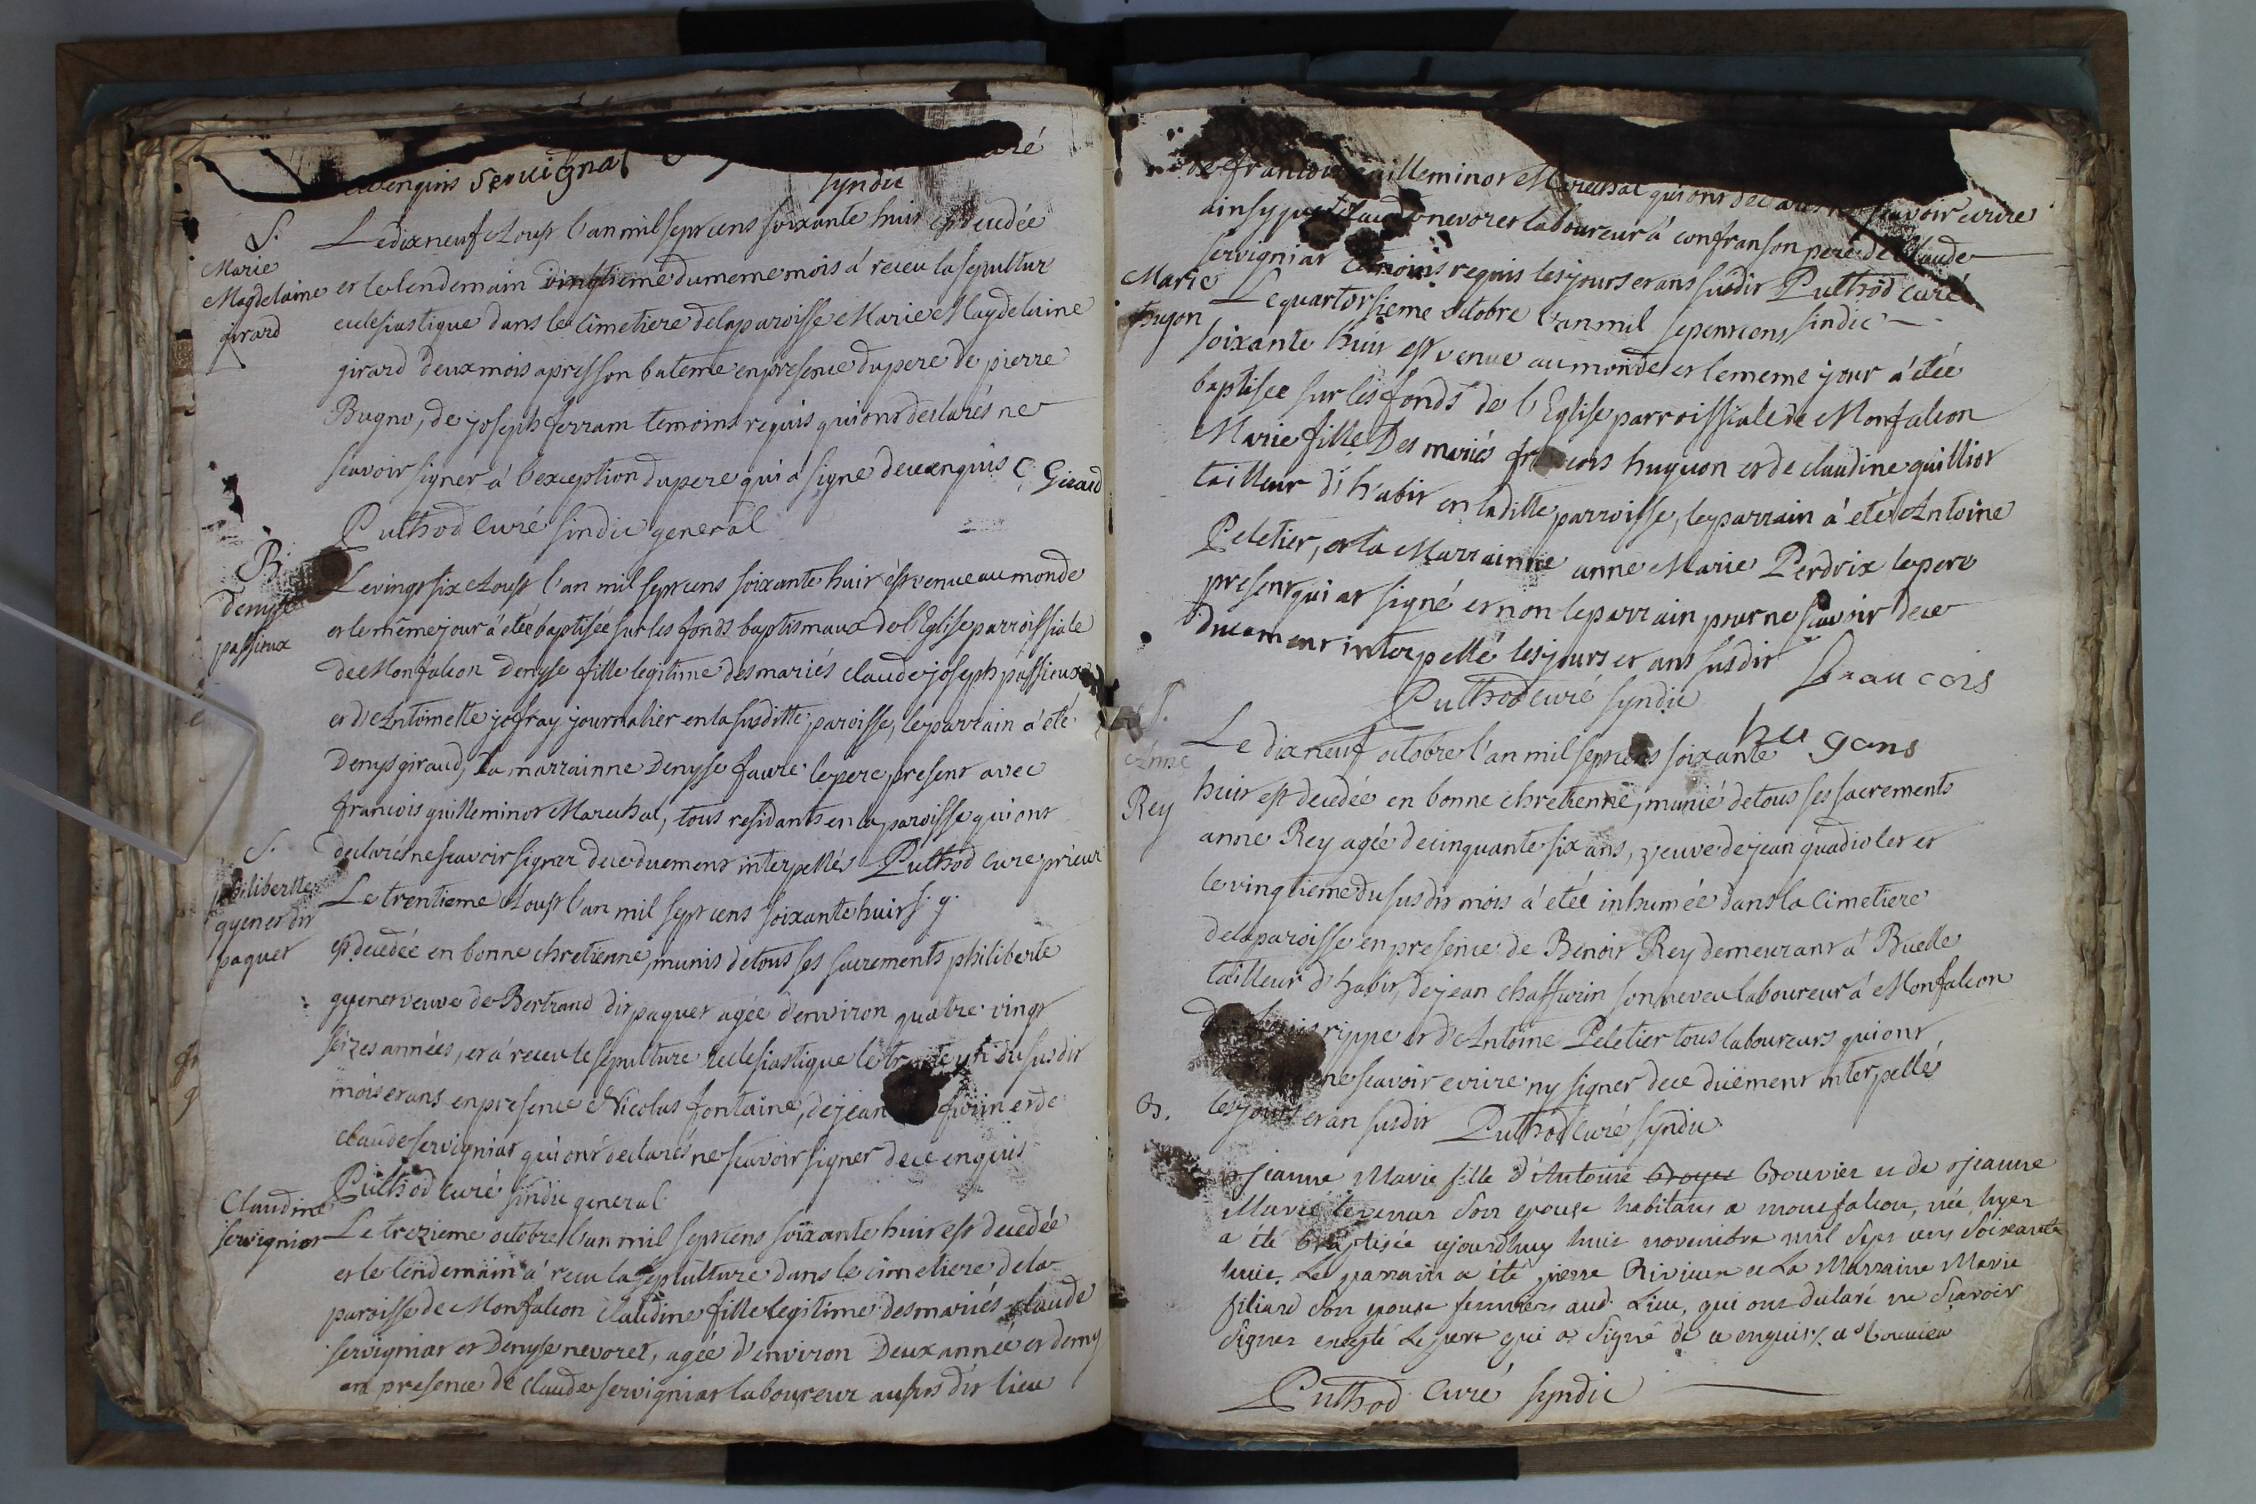 enquis servignat
syndic
S.
Marie
Magdelaine
girard
Le dix neuf Aoust l'an mil sept cens soixante huit est decedée
et le lendemain vingtieme du meme mois á receu la sepultur
eclesiastique dans le Cimetiere de la paroisse Marie Magdelaine
girard deux mois apres son bateme en presence du pere de pierre
Bugno, de joseph ferram temoins requis qui ont declarés ne
scavoir signer á l'exception du pere qui a signe de ce enquis C. Girard
Puthod Curé sindic general
B.
denyse
passieux
Le vingt six Aoust l'an mil sept cens soixante huit est venue au monde
et le même jour á etée baptisée sur les fonds baptismaux de l'Eglise parroissiale
de Monfalcon Denyse fille legitime des mariés claude joseph passieux
et d'Antoinette jofray journalier en la susditte paroisse, le parrain á eté
Denys giraud, La marrainne Denyse faure le pere present avec
francois guilleminot Marechal, tous residants en la paroisse qui ont
declarés ne scavoir signer de ce duement interpellés Puthod Cure prieur
S.
philibertte
gyenet dit
paquet
Le trentieme Aoust l'an mil sept cens soixante huit s. g.
est decedée en bonne chretienne, munis de tous ses sacrements philiberte
gyenet veuve de Bertrand dit paquet agée d'environ quatre vingt
seizes années, et á receu le sepulture ecclesiastique le trente un du susdit
mois et ans en presence Nicolas fontaine, de jean furin et de
claude servigniat qui ont declarés ne scavoir signer de ce enquis
Puthod Curé sindic general
Claudine
servigniat
Le trezieme octobre l'an mil sept cens soixante huit est decedée
et le lendemain á recu la seplulture dans le cimetiere de la
paroisse de Monfalcon claudine fille legitime des mariés claude
servigniat et Denyse nevoret, agée d'environ Deux année et demy
en presence de claude servigniat laboureur au susdit lieu
de francois guilleminot Marechal qui ont declarés ne scavoir ecrire
ainsy que claude nevoret laboureur á confranson pere de Claude
servigniat temoins requis les jours et ans susdit Puthod Curé
sindic
Marie
hugon
Le quartorsieme octobre l'an mil sepent cens
soixante huit est venue au monde et le meme jour á etée
baptisée sur les fonds de l'Eglise parroissiale de Monfalcon
Marie fille Des mariés francois huguon et de claudine guilliot
tailleur di h'abit en laditte parroisse, le parrain á eté Antoine
Peletier, et la Marrainne anne Marie Perdrix le pere
present qui at signé et non le parrain pour ne scavoir de ce
ducament interpellé les jours et ans susdit francois
hugons
Puthod curé syndic
S.
Anne
Rey
Le dix neuf octobre l'an mil sept cens soixante
huit est decedée en bonne chretienne, munié de tous ses sacrements
anne Rey agée de cinquante six ans, veuve de jean quadiolet et
le vingtieme du susdit mois á etée inhumée dans la Cimetiere
de la paroisse en presence de Benoit Rey demeurant á Buelle
tailleur d'habit, de jean chaffurin son neveu laboureur á Monfalcon
rippe et d'Antoine Peletier tous laboureurs qui ont
ne scavoir ecrire ny signer de ce duement interpellé
les jours et an susdit Puthod Curé syndic
B.
Jeanne Marie fille d'Antoine Bouvier et de Jeanne
Marie tevenat Son epouse habitans a montfalcon, née hyer
a été baptisée ajourdhuy huit novembre mil sept cens soixante
huit. Le parrain a été pierre Rivieur et La Marraine Marie
filiard Son epouse fermiers aud. Lieu, qui ont declaré ne scavoir
signer excepté Le pere qui a Signé de ce enquis. a Bouvier
Puthod Curé syndic